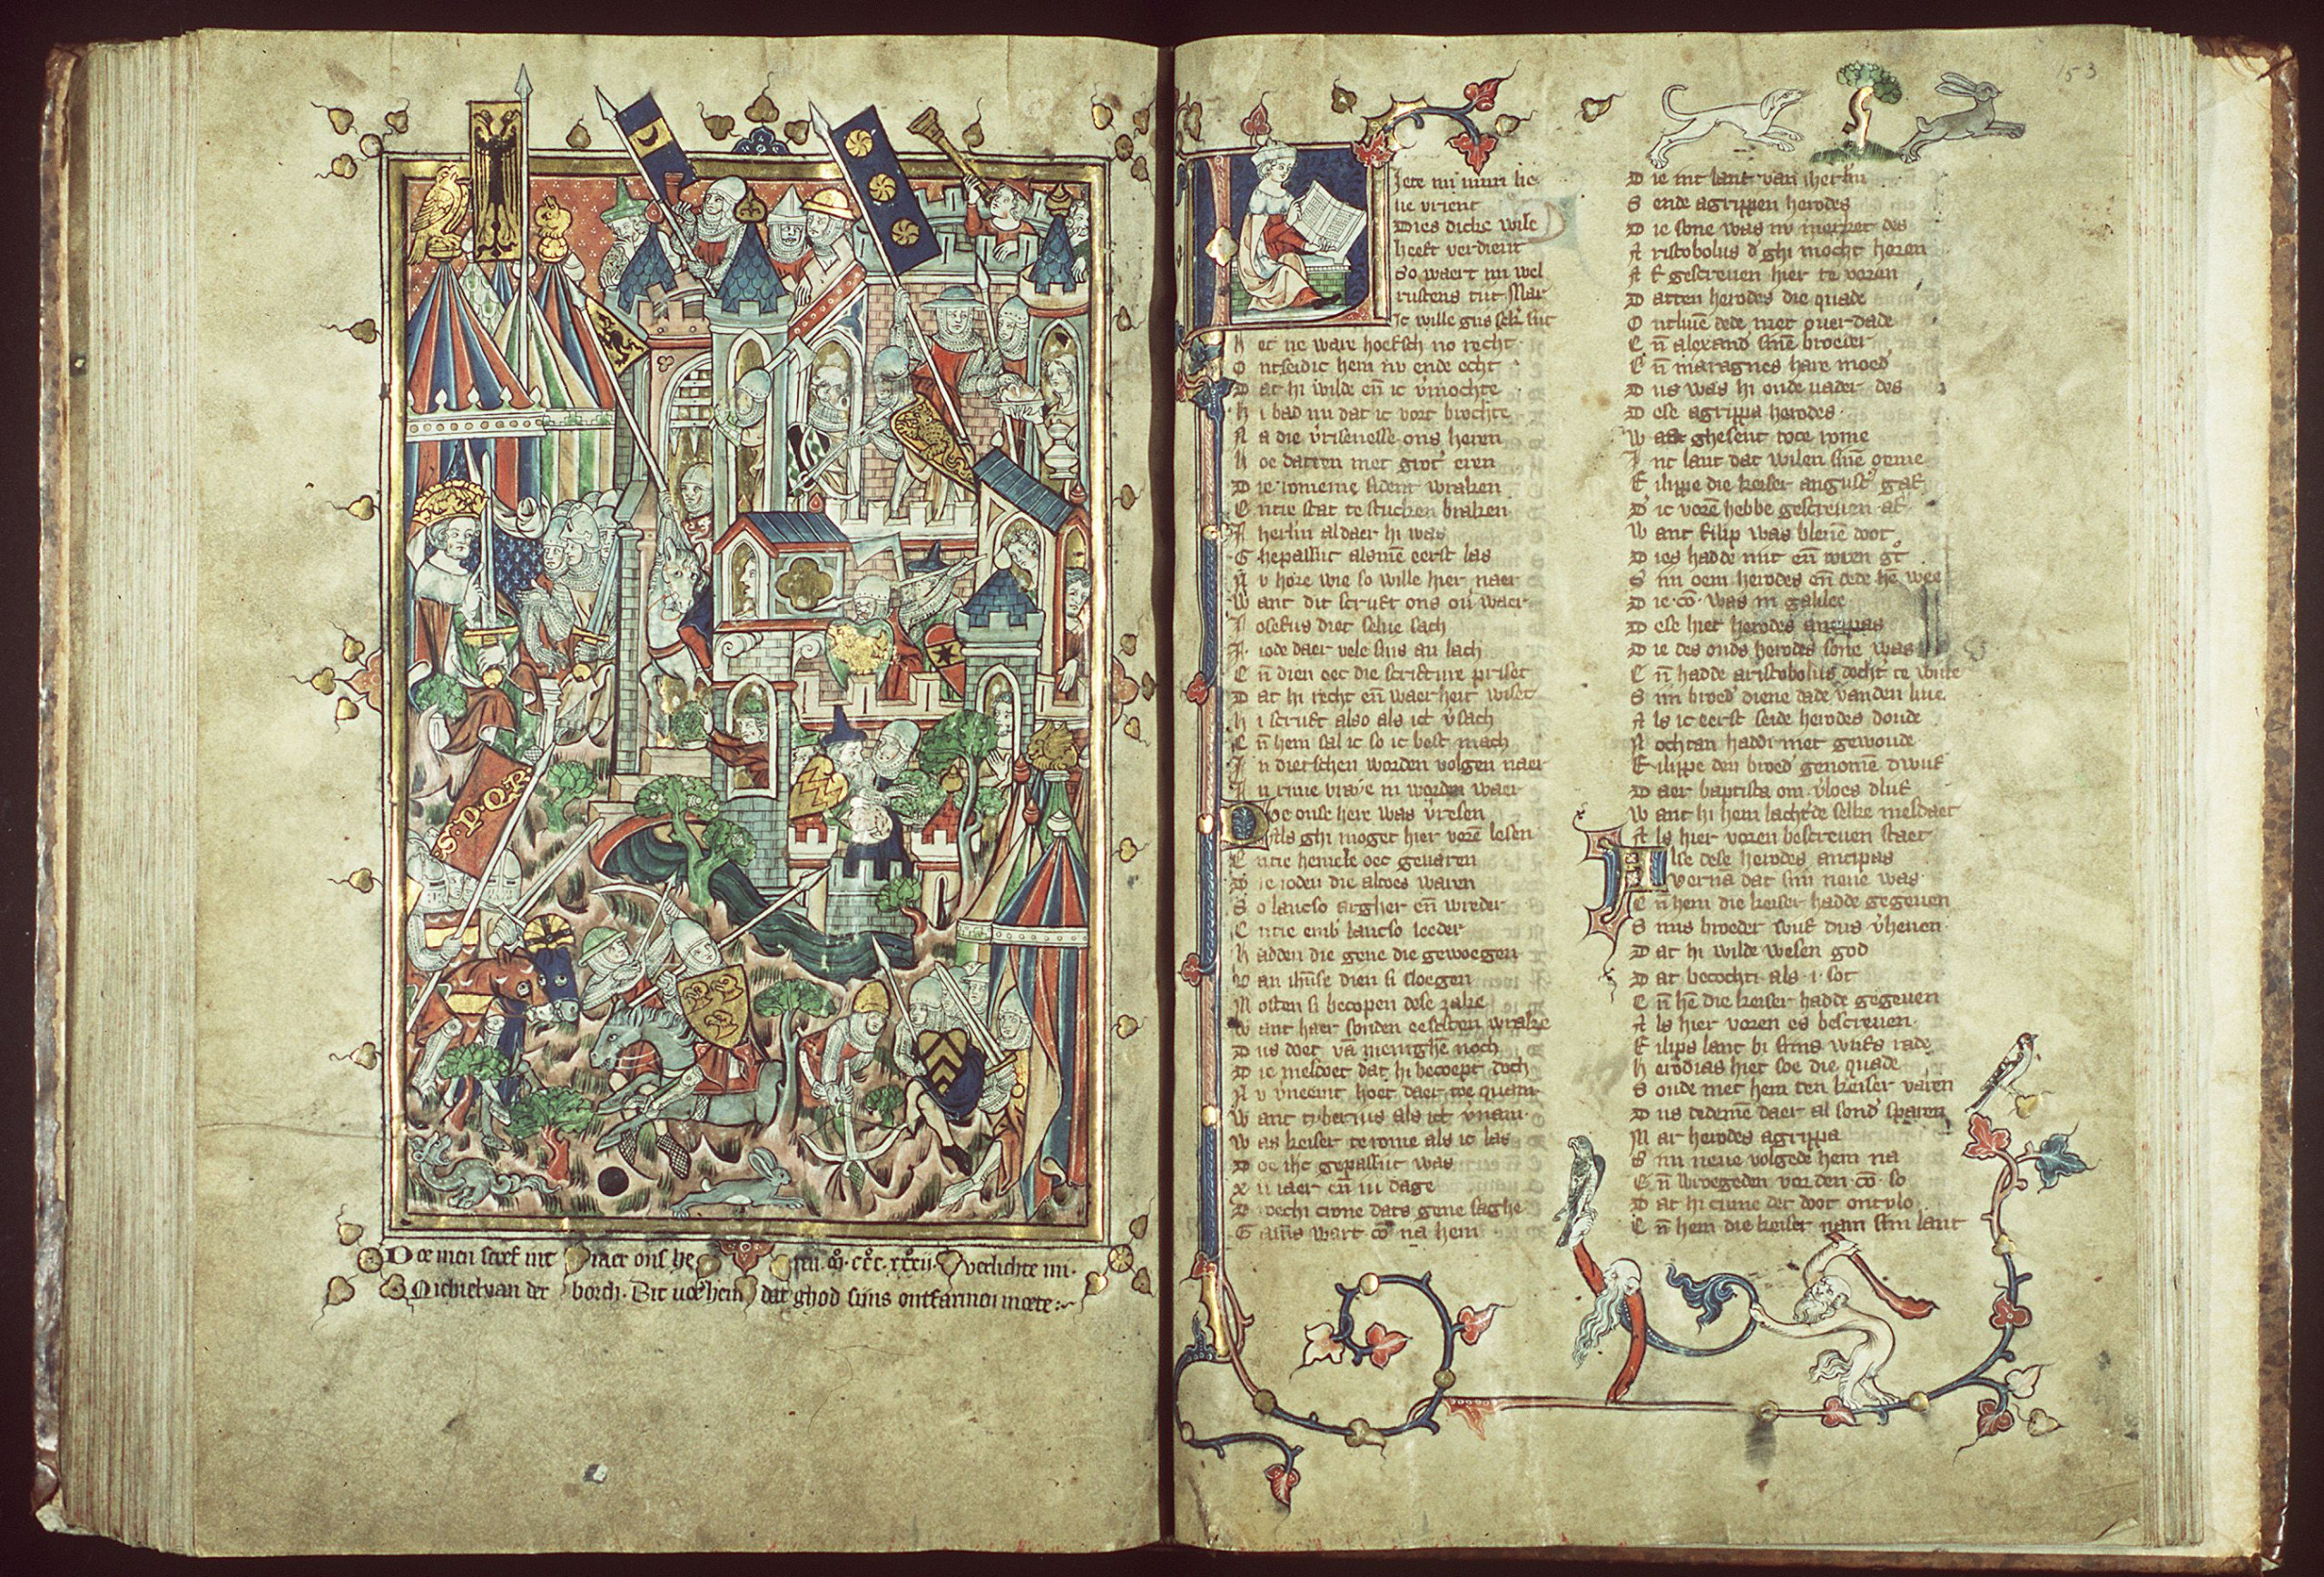 S·P·Q·R
Doe men scref int iaer ons heren m·ccc·xxxii· verlichte mi·
Michiel van der borch· Bit voer hem dat ghod sijns ontfarmen moete:
153
lieue vrient
Dies dicke wile
heeft verdient
So waert mi wel
H et ne ware hoefsch no recht
O ntseidic hem nv ende echt
D at hi wilde en̄ ic v̓mochte
H i bad mi dat ic vort brochte
N a die v̓risenesse ons heren
H oe datten met grot̓ eren
D ie romeine sident wraken
E ntie stat te stucken braken
Ih̓erlm aldaer hi was
G hepassijt alsmē eerst las
N v hore wie so wille hier naer
W ant dit scrijft ons ou̓ waer
J osefus diet selue sach
J· iode daer vele sijns an lach
E n̄ dien oec die scrifture priset
D at hi recht en̄ waerheit wiset
H i scrijft also als ict v̓sach
E n̄ hem sal ic so ic best mach
J n dietschen worden volgen naer
Doe onse here was v̓resen
Als ghi moget hier vorē lesen
E ntie hemele oec geuaren
D ie ioden die altoes waren
S o lancso argher en̄ wreder
E ntie emb̓ lancso leeder
H adden die gene die gewoegen
V an ih̄use dien si sloegen
M osten si becopen dese zake
W ant haer sonden eeschten wrake
D us doet vā menighē noch
D ie mesdoet dat hi becoept doch
N v v̓neemt hoet daer toe quam
W ant tyberius als ict v̓nam·
W as keiser te rome als ic las
D oe ihc gepassijt was
x u iaer en̄ iii dage
G aius wart cō na hem
D ie int lant van iherlm
S ende agrippen herodes
D ie sone was nv merket des
A ristobolus d̓ ghi mocht horen
A f gescreuen hier te voren
D atten herodes die quade
O ntliuē dede met ouerdade
E n̄ alexand̓ sinē broeder
E n̄ maragnes hare moed̓
D us was hi oude uader des
D ese agrippa herodes·
W art ghesent tote rome
I nt lant dat wilen sinē oeme
F ilippe die keiser august̓ gaf
D̓ ic vorē hebbe gescreuen af
W ant filip was bleuē doot
S ijn oem herodes en̄ dede hē wee
D ie·cō· was in galilee
D ese hiet herodes antipas
D ie des ouds herodes sone was
E n̄ hadde aristobolus docht̓ te wiue
S ijn broed̓ diene dade vanden liue
A ls ic eerst seide herodes doude
N ochtan haddi met gewoude
F ilippe den broed̓ genomē dwijf
D aer baptista om v̓loes dlijf
W ant hi hem lacht̓de selke mesdaet
A ls hier voren bescreuen staet
Alse dese herodes antipas
V ernā dat sijn neue was
E n̄ hem die keiser hadde gegeuen
S ijns broeder wijf dus v̓heuen
D at hi wilde wesen god
D at becochti als ·i· sot
E n̄ hē die keiser hadde gegeuen
A ls hier voren es bescreuen
F ilips lant bi sijns wijfs rade
H erodias hiet soe die quade
S oude met hem ten keiser varen
D us dedemē daer al sond̓ sparen
M ar herodes agrippa
S ijn neue volgede hem na
E n̄ wroegeden vor den·cō· so
D at hi cume der doot ontvlo
E n̄ hem die keiser nam sijn lant